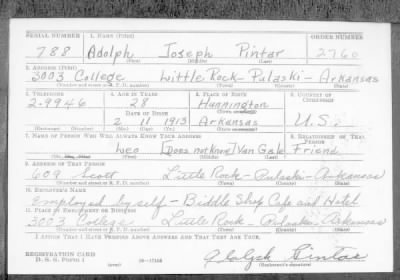 SERIAL NUMBER 1. NAME (Print) ORDER NUMBER
788 Adolph Joseph Pintar 2760
(First) (Middle) (Last)
2. ADDRESS (Print)
3003 College Little Rock - Pulaski - Arkansas
(Number and street or R. F. D. number) (Town) (County) (State)
3. TELEPHONE 4. AGE IN YEARS 5. PLACE OF BIRTH 6. COUNTRY OF CITIZENSHIP
2-9946 28 Hunnington
DATE OF BIRTH (Town or county)
2 11 1913 Arkansas U.S.
(Exchange) (Number) (Mo.) (Day) (Yr.) (State or country)
7. NAME OF PERSON WHO WILL ALWAYS KNOW YOUR ADDRESS 8. RELATIONSHIP OF THAT PERSON
Leo (Does not know) Van Gale Friend
(Mr., Mrs., Miss) (First) (Middle) (Last)
9. ADDRESS OF THAT PERSON
609 Scott Little Rock - Pulaski - Arkansas
(Number and street or R. F. D. number) (Town) (County) (State)
10. EMPLOYER'S NAME
Employed by self - Biddle Shop Cafe and Hotel
11. PLACE OF EMPLOYMENT OR BUSINESS
3003 College Little Rock - Pulaski - Arkansas
(Number and street or R. F. D. number) (Town) (County) (State)
I AFFIRM THAT I HAVE VERIFIED ABOVE ANSWERS AND THAT THEY ARE TRUE.
REGISTRATION CARD
D. S. S. Form 1 16-17105 Adolph Pintar
(Registrant's signature)